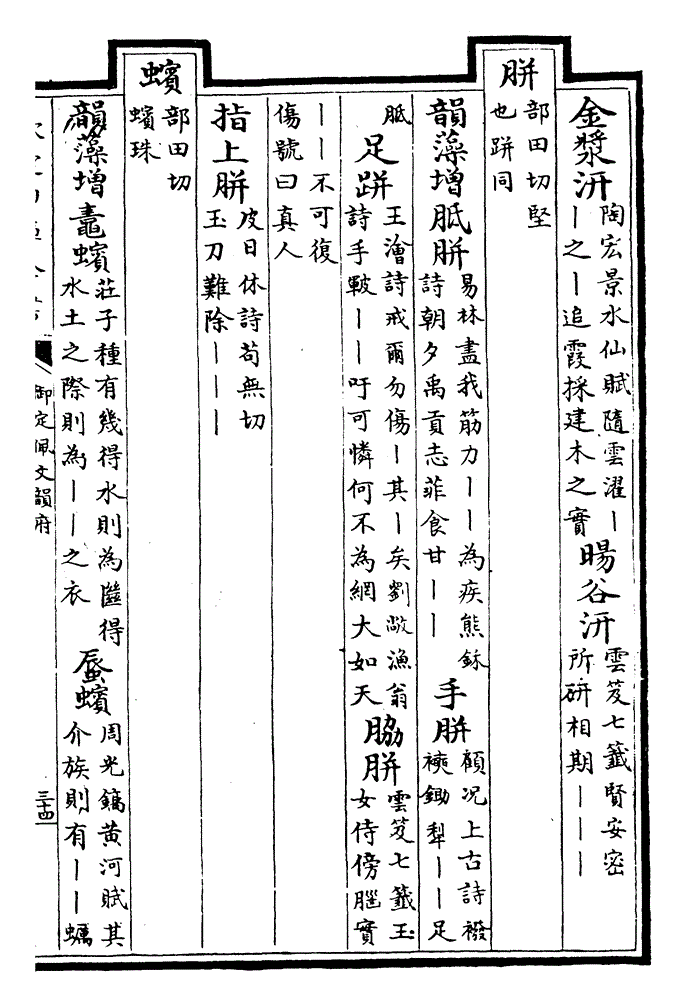 金漿汧 陶宏景水仙賦隨雲濯丨丨之丨追霞採建木之實 暘谷汧 雲笈七籤賢安密所研相期丨丨丨
胼 部田切堅也跰同
韻藻增胝胼 易林盡我筋力丨丨為疾熊鉌詩朝夕禹貢志菲食甘丨丨 手胼 顧况上古詩襏襫鋤犁丨丨足
胝 足跰 王澮詩戒爾勿傷丨其丨矣劉敞漁翁詩手皸丨丨吁可憐何不為網大如天 脇胼 雲笈七籤玉女侍傍腦實
丨丨不可復傷號曰真人
指上胼 皮日休詩苟無切玉刀難除丨丨丨
蠙 部田切蠙珠
韻藻增鼃蠙 莊子種有幾得水則為㡭得水土之際則為丨丨之衣 蜃蠙 周光鎬黃河賦其介族則有丨丨蠣
御定佩文韻府
三十四